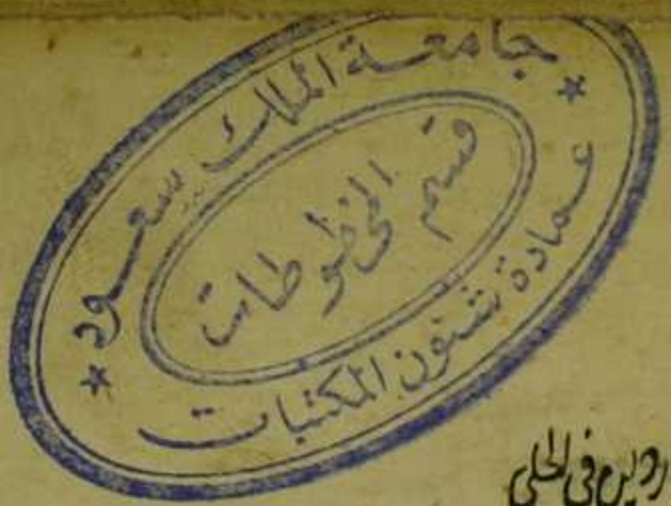 جامعة الملك سعود
قسم المخطوطات
عمادة شئون المكتبات
في الحلى